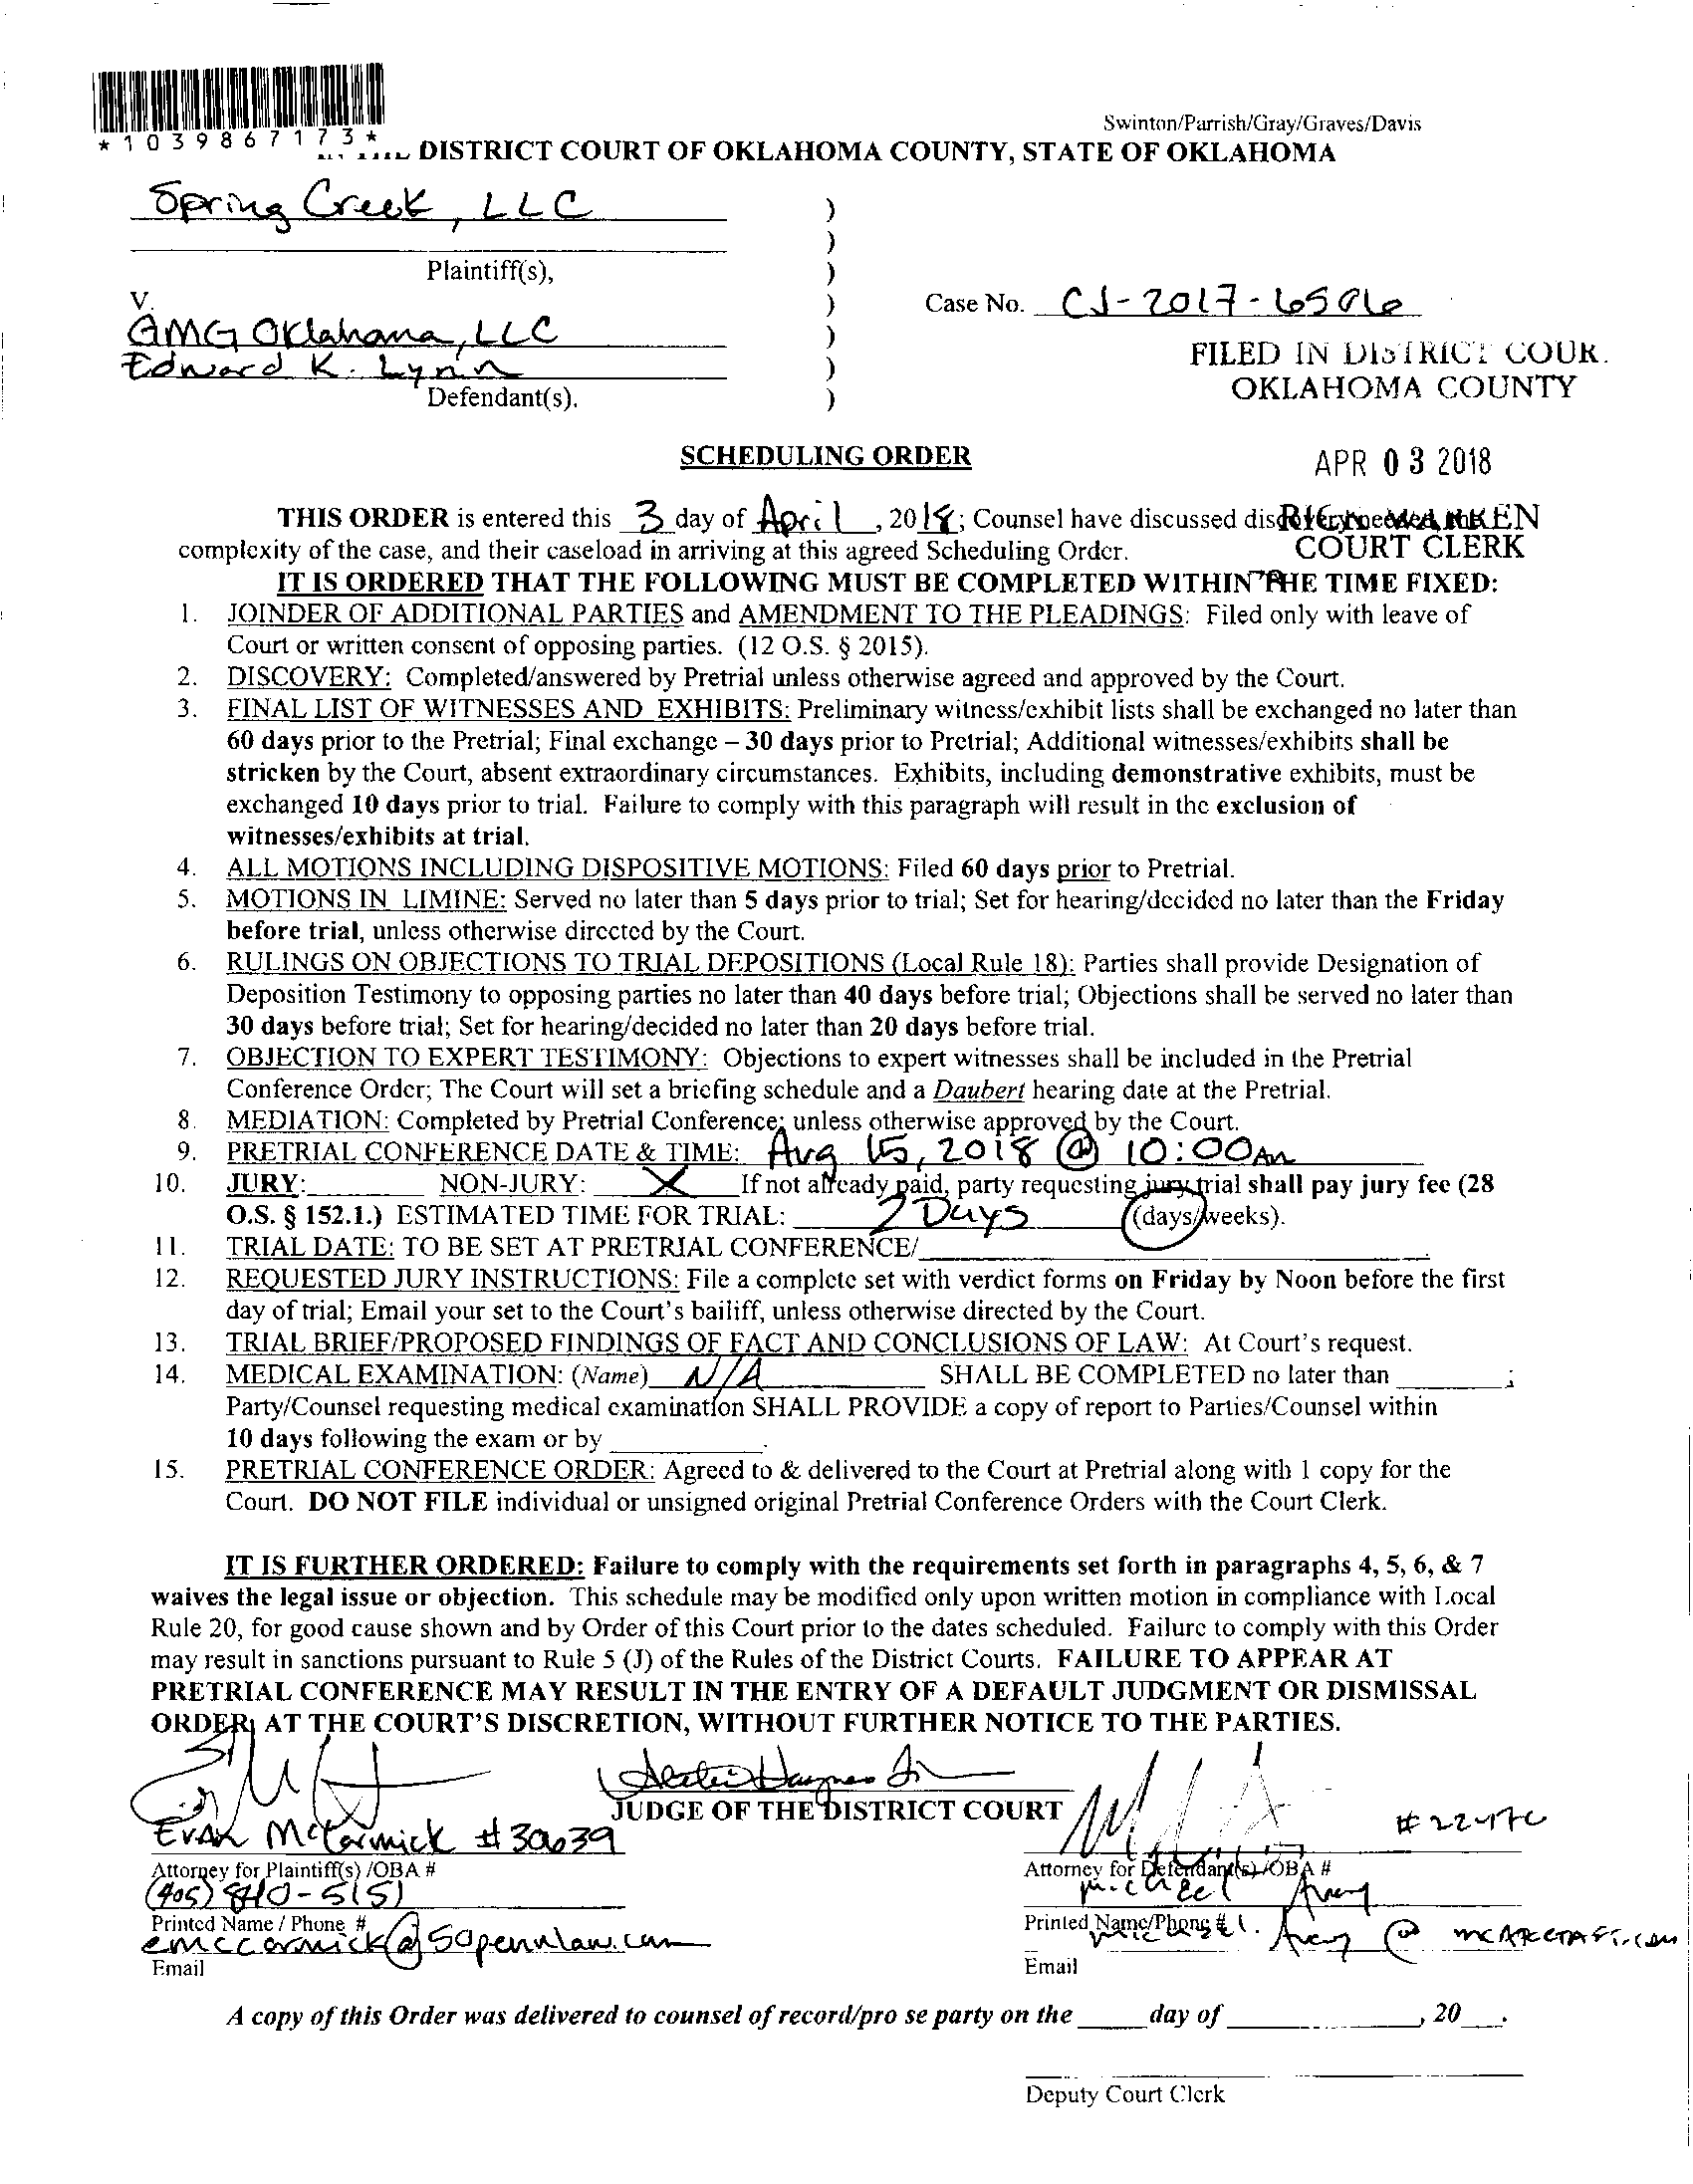 *1039867173*
Swinton/Parrish/Gray/Graves/Davis
DISTRICT COURT OF OKLAHOMA COUNTY, STATE OF OKLAHOMA
Spring Creek, LLC )
)
Plaintiff(s), )
V. ) Case No. CJ-2017-6506
GMG Oklahoma, LLC )
Edward K. Lynn )
Defendant(s). )
FILED IN DISTRICT COUR.
OKLAHOMA COUNTY
SCHEDULING ORDER
APR 03 2018
THIS ORDER is entered this 3 day of April, 2018; Counsel have discussed discovery needed, the
COURT CLERK
complexity of the case, and their caseload in arriving at this agreed Scheduling Order.
IT IS ORDERED THAT THE FOLLOWING MUST BE COMPLETED WITHIN THE TIME FIXED:
1. JOINDER OF ADDITIONAL PARTIES and AMENDMENT TO THE PLEADINGS: Filed only with leave of
Court or written consent of opposing parties. (12 O.S. § 2015).
2. DISCOVERY: Completed/answered by Pretrial unless otherwise agreed and approved by the Court.
3. FINAL LIST OF WITNESSES AND EXHIBITS: Preliminary witness/exhibit lists shall be exchanged no later than
60 days prior to the Pretrial; Final exchange – 30 days prior to Pretrial; Additional witnesses/exhibits shall be
stricken by the Court, absent extraordinary circumstances. Exhibits, including demonstrative exhibits, must be
exchanged 10 days prior to trial. Failure to comply with this paragraph will result in the exclusion of
witnesses/exhibits at trial.
4. ALL MOTIONS INCLUDING DISPOSITIVE MOTIONS: Filed 60 days prior to Pretrial.
5. MOTIONS IN LIMINE: Served no later than 5 days prior to trial; Set for hearing/decided no later than the Friday
before trial, unless otherwise directed by the Court.
6. RULINGS ON OBJECTIONS TO TRIAL DEPOSITIONS (Local Rule 18): Parties shall provide Designation of
Deposition Testimony to opposing parties no later than 40 days before trial; Objections shall be served no later than
30 days before trial; Set for hearing/decided no later than 20 days before trial.
7. OBJECTION TO EXPERT TESTIMONY: Objections to expert witnesses shall be included in the Pretrial
Conference Order; The Court will set a briefing schedule and a Daubert hearing date at the Pretrial.
8. MEDIATION: Completed by Pretrial Conference; unless otherwise approved by the Court.
9. PRETRIAL CONFERENCE DATE & TIME: Aug 15, 2018 @ 10:00 Am
10. JURY: NON-JURY: X If not already paid, party requesting jury trial shall pay jury fee (28
O.S. § 152.1.) ESTIMATED TIME FOR TRIAL: 2 Days (days/weeks).
11. TRIAL DATE: TO BE SET AT PRETRIAL CONFERENCE/
12. REQUESTED JURY INSTRUCTIONS: File a complete set with verdict forms on Friday by Noon before the first
day of trial; Email your set to the Court's bailiff, unless otherwise directed by the Court.
13. TRIAL BRIEF/PROPOSED FINDINGS OF FACT AND CONCLUSIONS OF LAW: At Court's request.
14. MEDICAL EXAMINATION: (Name) N/A SHALL BE COMPLETED no later than ;
Party/Counsel requesting medical examination SHALL PROVIDE a copy of report to Parties/Counsel within
10 days following the exam or by .
15. PRETRIAL CONFERENCE ORDER: Agreed to & delivered to the Court at Pretrial along with 1 copy for the
Court. DO NOT FILE individual or unsigned original Pretrial Conference Orders with the Court Clerk.
IT IS FURTHER ORDERED: Failure to comply with the requirements set forth in paragraphs 4, 5, 6, & 7
waives the legal issue or objection. This schedule may be modified only upon written motion in compliance with Local
Rule 20, for good cause shown and by Order of this Court prior to the dates scheduled. Failure to comply with this Order
may result in sanctions pursuant to Rule 5 (J) of the Rules of the District Courts. FAILURE TO APPEAR AT
PRETRIAL CONFERENCE MAY RESULT IN THE ENTRY OF A DEFAULT JUDGMENT OR DISMISSAL
ORDER, AT THE COURT'S DISCRETION, WITHOUT FURTHER NOTICE TO THE PARTIES.
JUDGE OF THE DISTRICT COURT
Evan McCormick #30639
Attorney for Plaintiff(s) /OBA # Attorney for Defendant(s) /OBA #
(405) 840-5151 Michael Avery
Printed Name / Phone # Printed Name/Phone #
emccormick@sapennlaw.com
Email Email
A copy of this Order was delivered to counsel of record/pro se party on the day of , 20 .
Deputy Court Clerk